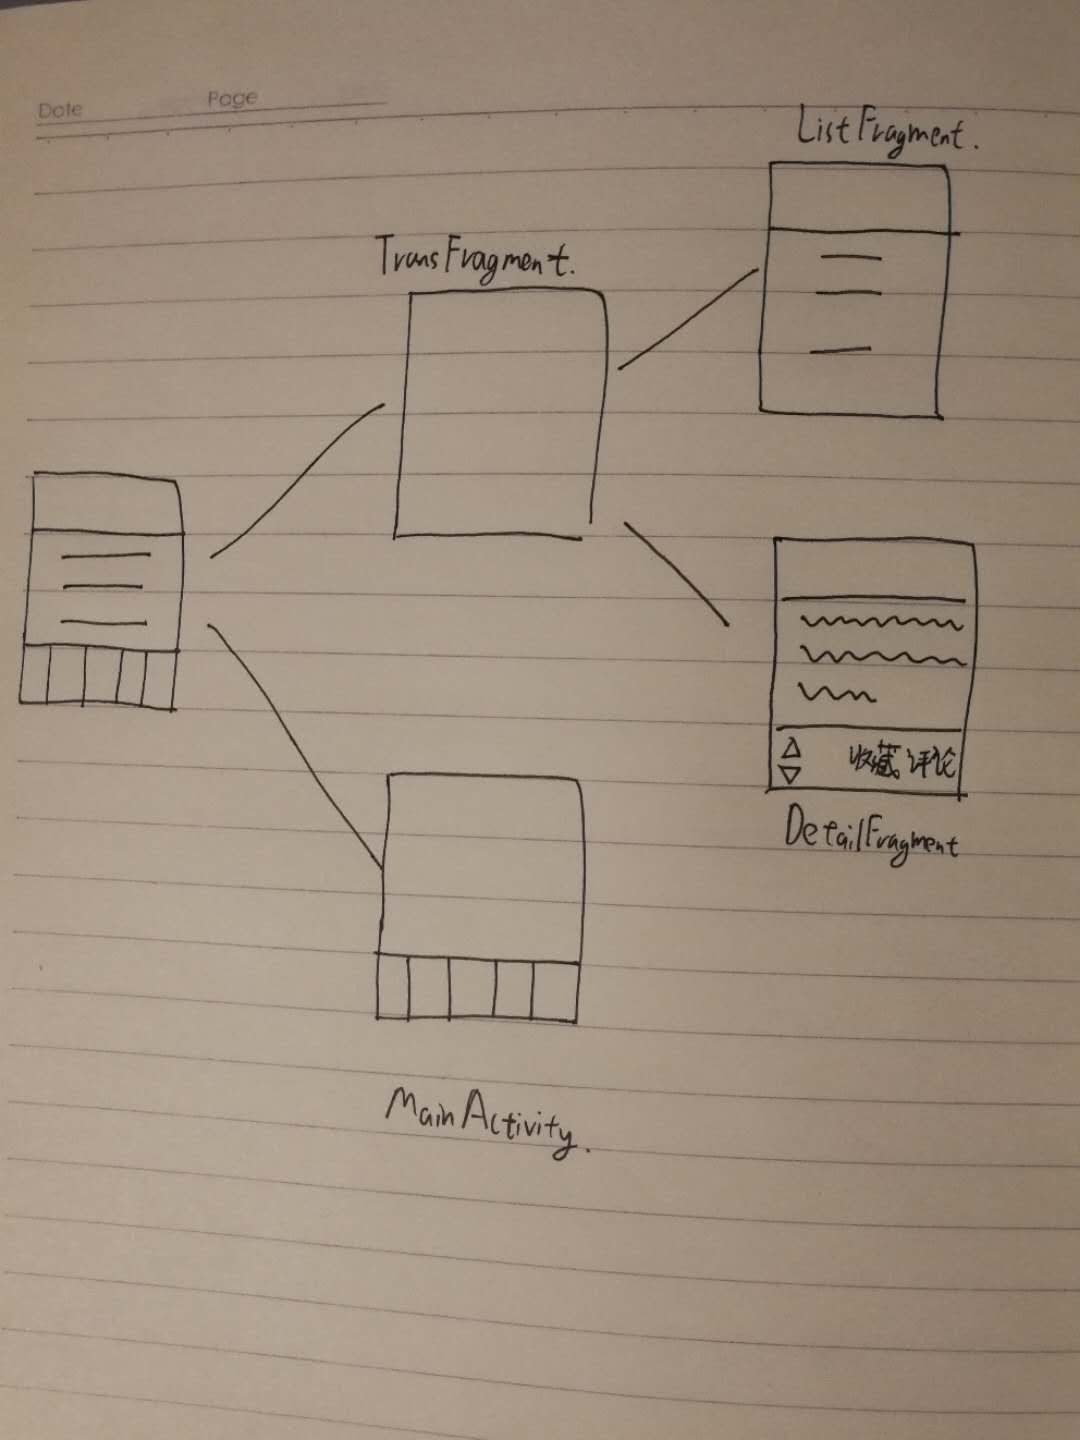 Date Page
ListFragment.
TransFragment.
收藏 评论
DetailFragment
MainActivity.